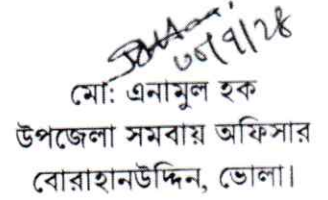 মো: এনামুল হক
উপজেলা সমবায় অফিসার
বোরাহানউদ্দিন, ভোলা।